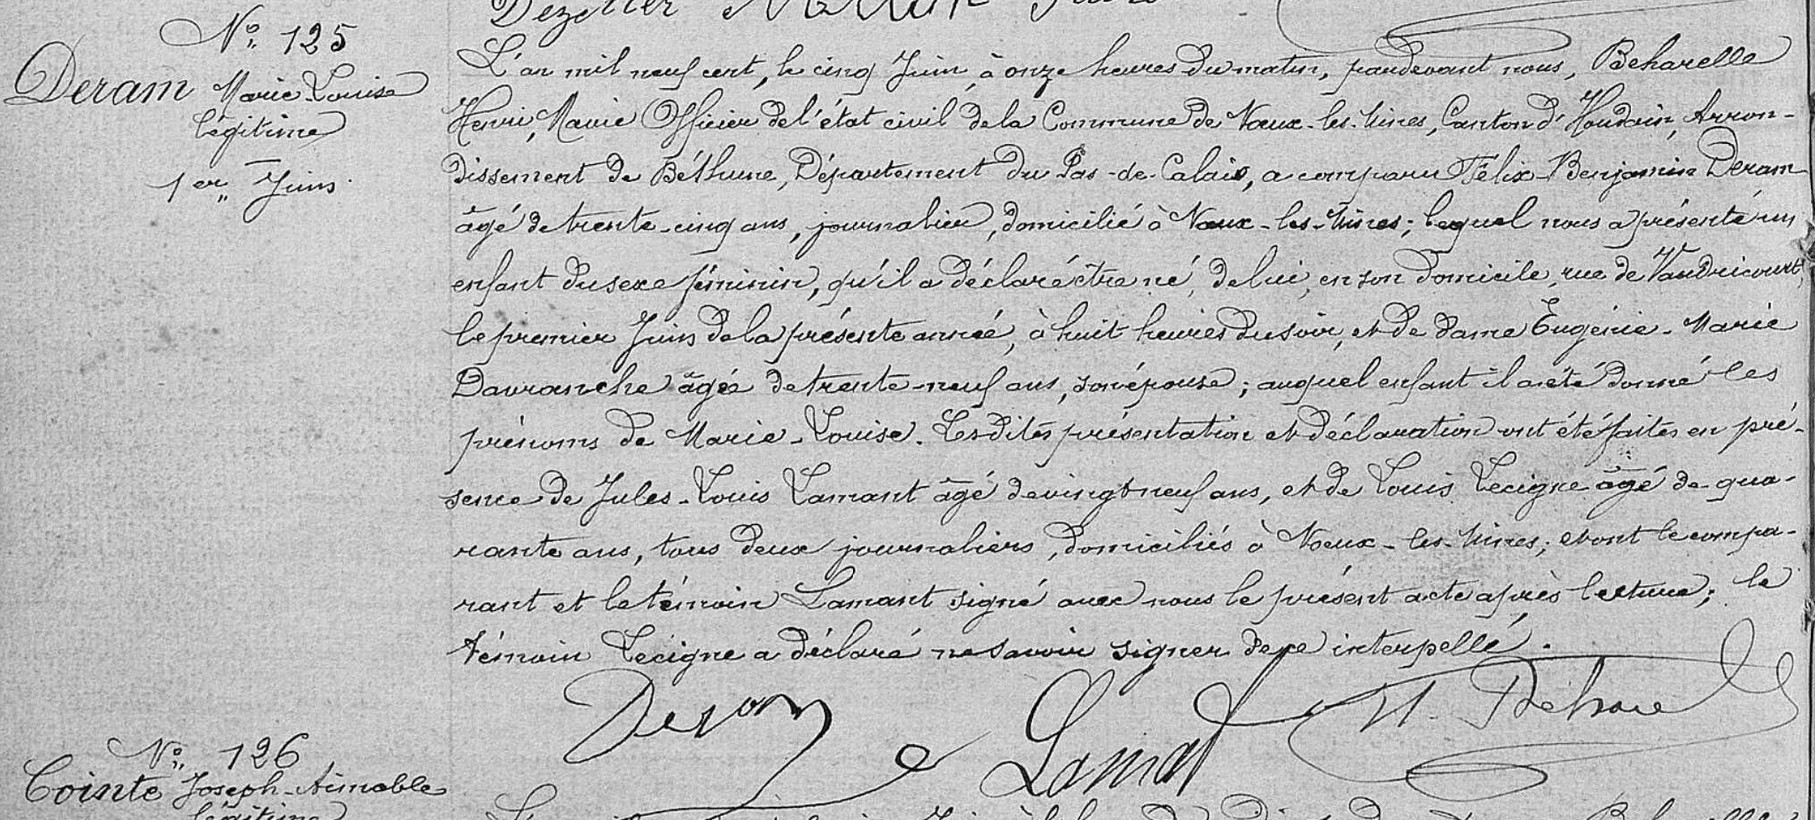 Dezetter
Nº 125
Deram Marie-Louise
légitime
1er Juin
L'an mil neuf cent, le cinq Juin, à onze heures du matin, pardevant nous, Beharelle
Henri, Marie Officier de l'état civil de la Commune de Nœux-les-Mines, Canton d'Houdain, Arron-
dissement de Béthune, Département du Pas-de-Calais, a comparu Félix-Benjamin Deram
âgé de trente-cinq ans, journalier, domicilié à Nœux-les-Mines; lequel nous a présenté un
enfant du sexe féminin, qu'il a déclaré être né, de lui, en son domicile, rue de Vaudricourt,
le premier Juin de la présente année, à huit heures du soir, et de dame Eugénie-Marie
Davranche âgée de trente-neuf ans, son épouse; auquel enfant il a été donné les
prénoms de Marie-Louise. Lesdites présentation et déclaration ont été faites en pré-
sence de Jules-Louis Lamant âgé de vingt neuf ans, et de Louis Lecigne âgé de qua-
rante ans, tous deux journaliers, domiciliés à Nœux-les-Mines; et ont le compa-
rant et le témoin Lamant signé avec nous le présent acte après lecture; le
témoin Lecigne a déclaré ne savoir signer de ce interpellé.
Deram Lamant H. Behare
Nº 126
Cointe Joseph-Aimable
légitime